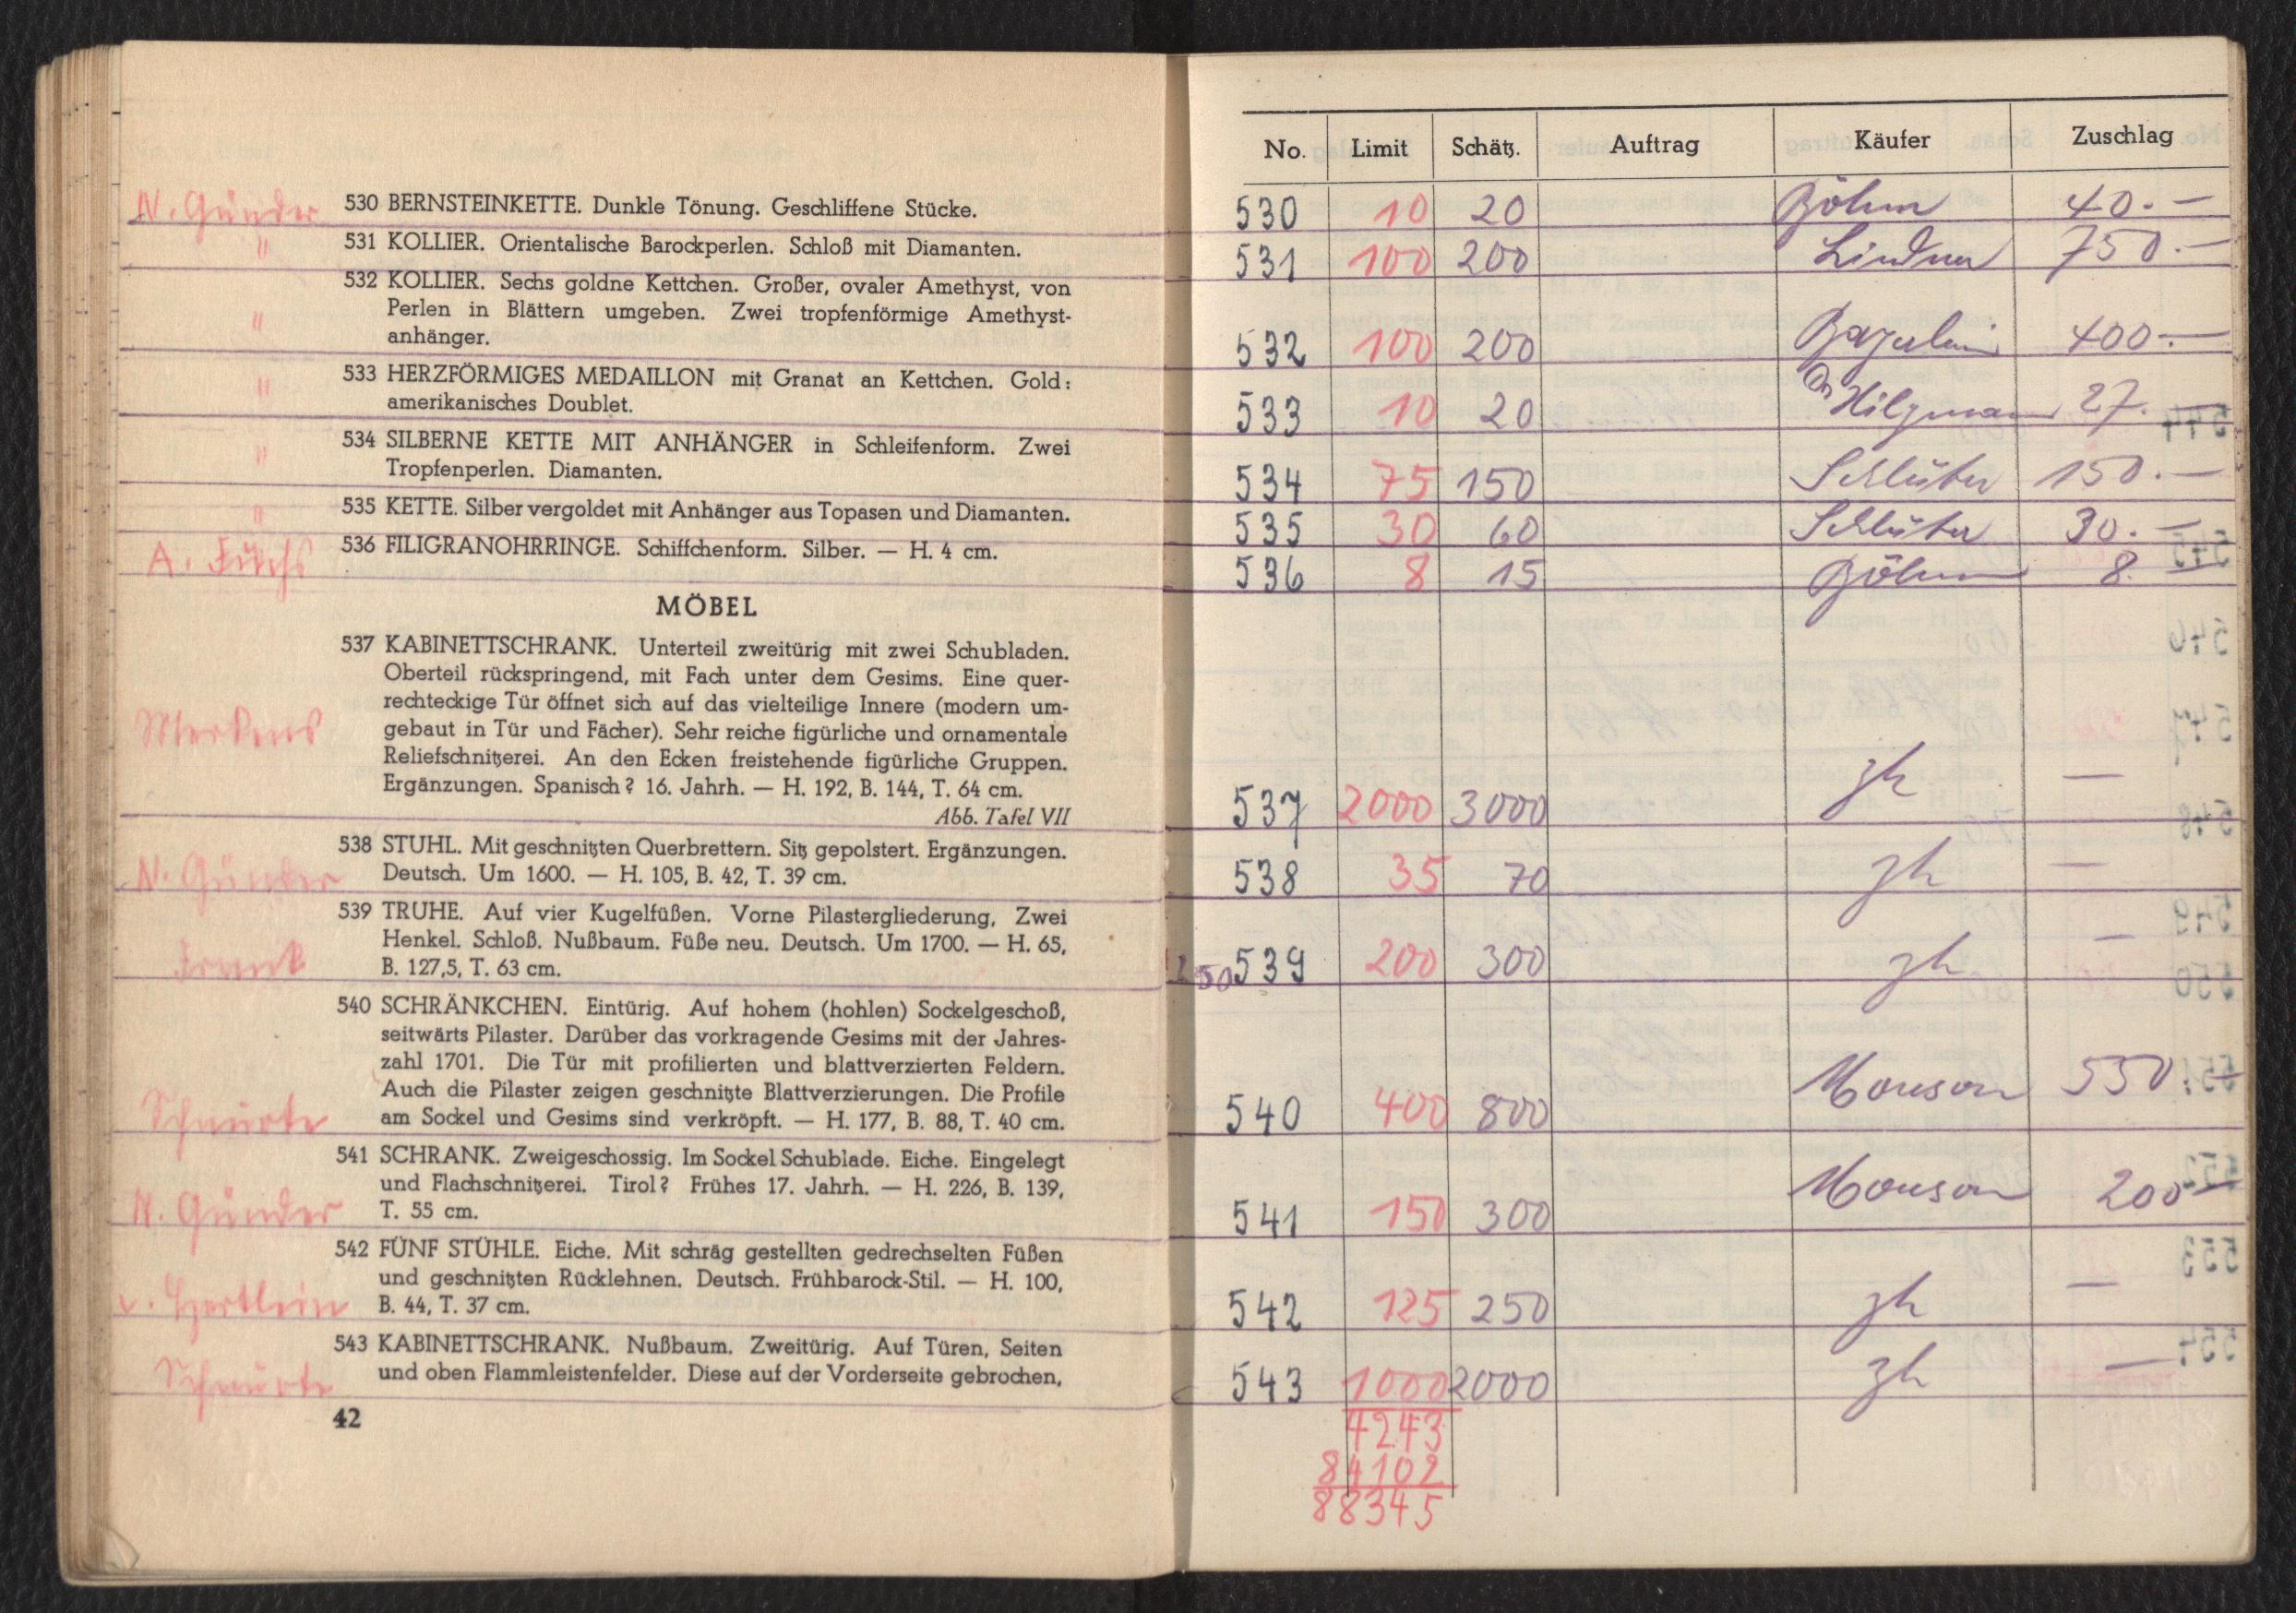 N. Günder 530 BERNSTEINKETTE. Dunkle Tönung. Geschliffene Stücke.
" 531 KOLLIER. Orientalische Barockperlen. Schloß mit Diamanten.
532 KOLLIER. Sechs goldne Kettchen. Großer, ovaler Amethyst, von
" Perlen in Blättern umgeben. Zwei tropfenförmige Amethyst-
anhänger.
" 533 HERZFÖRMIGES MEDAILLON mit Granat an Kettchen. Gold:
amerikanisches Doublet.
" 534 SILBERNE KETTE MIT ANHÄNGER in Schleifenform. Zwei
Tropfenperlen. Diamanten.
" 535 KETTE. Silber vergoldet mit Anhänger aus Topasen und Diamanten.
A. Füchs 536 FILIGRANOHRRINGE. Schiffchenform. Silber. — H. 4 cm.
MÖBEL
537 KABINETTSCHRANK. Unterteil zweitürig mit zwei Schubladen.
Oberteil rückspringend, mit Fach unter dem Gesims. Eine quer-
rechteckige Tür öffnet sich auf das vielteilige Innere (modern um-
Merkens gebaut in Tür und Fächer). Sehr reiche figürliche und ornamentale
Reliefschnitzerei. An den Ecken freistehende figürliche Gruppen.
Ergänzungen. Spanisch? 16. Jahrh. — H. 192, B. 144, T. 64 cm.
Abb. Tafel VII
538 STUHL. Mit geschnitzten Querbrettern. Sitz gepolstert. Ergänzungen.
N. Günder Deutsch. Um 1600. — H. 105, B. 42, T. 39 cm.
539 TRUHE. Auf vier Kugelfüßen. Vorne Pilastergliederung, Zwei
Henkel. Schloß. Nußbaum. Füße neu. Deutsch. Um 1700. — H. 65,
B. 127,5, T. 63 cm.
540 SCHRÄNKCHEN. Eintürig. Auf hohem (hohlen) Sockelgeschoß,
seitwärts Pilaster. Darüber das vorkragende Gesims mit der Jahres-
zahl 1701. Die Tür mit profilierten und blattverzierten Feldern.
Auch die Pilaster zeigen geschnitzte Blattverzierungen. Die Profile
Schnürte am Sockel und Gesims sind verkröpft. — H. 177, B. 88, T. 40 cm.
541 SCHRANK. Zweigeschossig. Im Sockel Schublade. Eiche. Eingelegt
und Flachschnitzerei. Tirol? Frühes 17. Jahrh. — H. 226, B. 139,
N. Günder T. 55 cm.
542 FÜNF STÜHLE. Eiche. Mit schräg gestellten gedrechselten Füßen
und geschnitzten Rücklehnen. Deutsch. Frühbarock-Stil. — H. 100,
v. Hertlein B. 44, T. 37 cm.
543 KABINETTSCHRANK. Nußbaum. Zweitürig. Auf Türen, Seiten
Schnürte und oben Flammleistenfelder. Diese auf der Vorderseite gebrochen,
42
No. Limit Schätz. Auftrag Käufer Zuschlag
530 10 20 Böhm 40.—
531 100 200 Lindner 750.—
532 100 200 400.—
533 10 20 Dr Hilgmann 27.—
534 75 150 Schlüter 150.—
535 30 60 Schlüter 30.—
536 8 15 Böhm 8.—
537 2000 3000 zh —
538 35 70 zh —
250 539 200 300 zh —
540 400 800 Monson 550.—
541 150 300 Monson 200—
542 125 250 zh —
543 1000 2000 zh —
4243
84102
88345